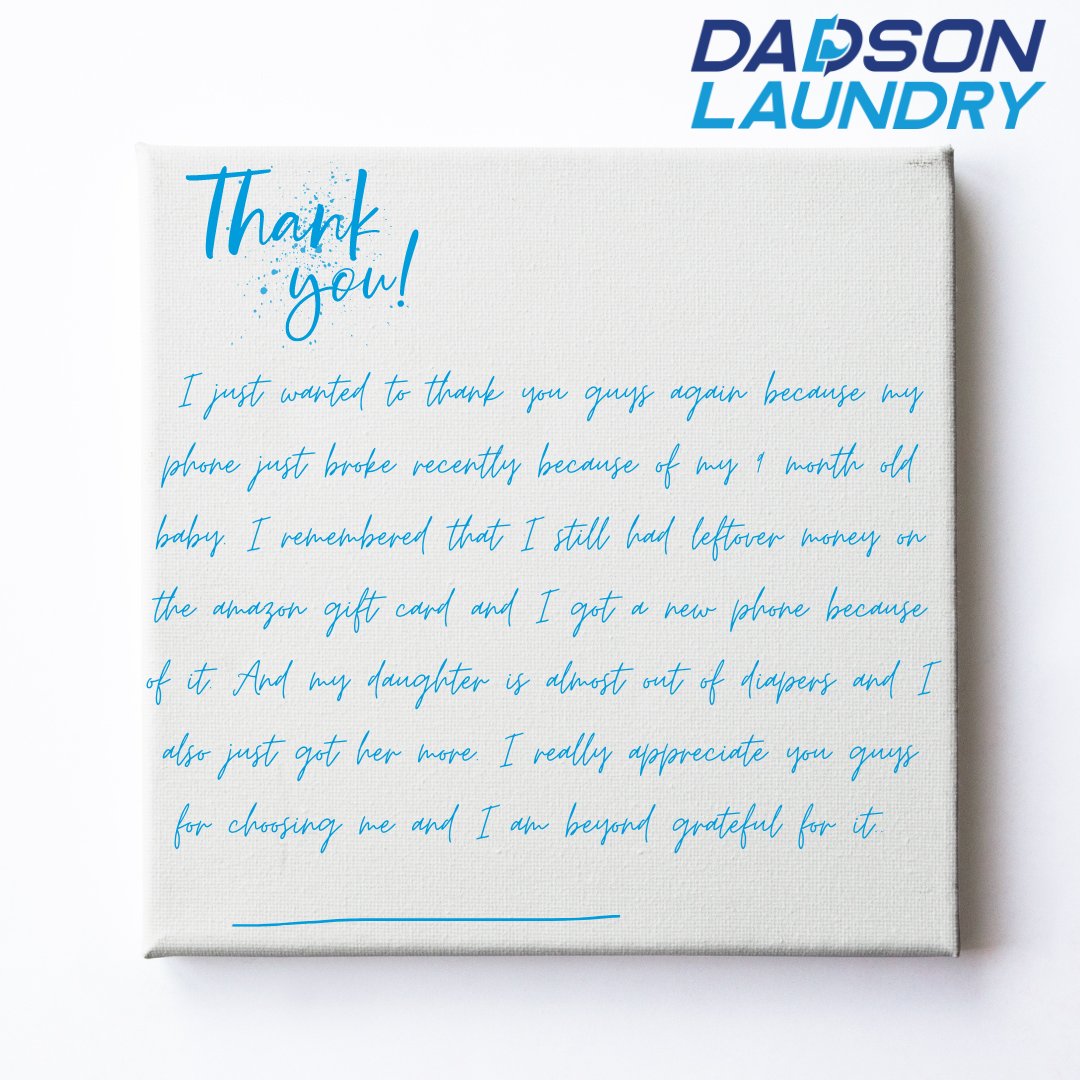 DADSON
LAUNDRY
Thank
you!
I just wanted to thank you guys again because my
phone just broke recently because of my 9 month old
baby. I remembered that I still had leftover money on
the amazon gift card and I got a new phone because
of it. And my daughter is almost out of diapers and I
also just got her more. I really appreciate you guys
for choosing me and I am beyond grateful for it..